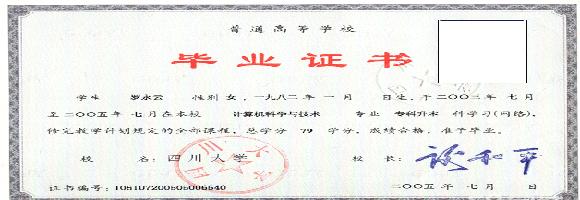 普通高等学校
毕业证书
学生 罗永云 性别 女，一九八二年 一 月 日生，于二〇〇三年 七月
至二〇〇五年 七月在本校 计算机科学与技术 专业 专科升本 科学习(网络)，
修完教学计划规定的全部课程，总学分 79 学分，成绩合格，准予毕业。
校 名：四川大学 校 长：谢和平
证书编号：106107200505006540 二〇〇五年 七月 日